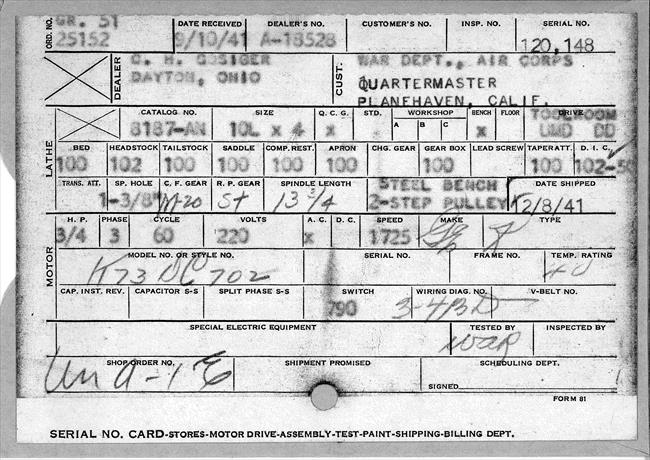 ORD. NO. GR. 51 DATE RECEIVED DEALER'S NO. CUSTOMER'S NO. INSP. NO. SERIAL NO.
25152 9/10/41 A-18528 120,148
DEALER C. H. GOSIGER CUST. WAR DEPT., AIR CORPS
DAYTON, OHIO QUARTERMASTER
PLANEHAVEN, CALIF.
LATHE CATALOG NO. SIZE Q. C. G. STD. WORKSHOP BENCH FLOOR DRIVE TOOLROOM
8187-AN 10L x 4 x A B C x UMD DD
BED HEADSTOCK TAILSTOCK SADDLE COMP. REST. APRON CHG. GEAR GEAR BOX LEAD SCREW TAPER ATT. D. I. C.
100 102 100 100 100 100 100 100 102-50
TRANS. ATT. SP. HOLE C. F. GEAR R. P. GEAR SPINDLE LENGTH STEEL BENCH DATE SHIPPED
1-3/8" M-20 St 13 3/4 2-STEP PULLEY 12/8/41
MOTOR H. P. PHASE CYCLE VOLTS A. C. D. C. SPEED MAKE TYPE
3/4 3 60 220 x 1725
MODEL NO. OR STYLE NO. SERIAL NO. FRAME NO. TEMP. RATING
K73DC702 40
CAP. INST. REV. CAPACITOR S-S SPLIT PHASE S-S SWITCH WIRING DIAG. NO. V-BELT NO.
790 3-4BD
SPECIAL ELECTRIC EQUIPMENT TESTED BY INSPECTED BY
SHOP ORDER NO. SHIPMENT PROMISED SCHEDULING DEPT.
Un A-1 E
SIGNED
FORM 81
SERIAL NO. CARD-STORES-MOTOR DRIVE-ASSEMBLY-TEST-PAINT-SHIPPING-BILLING DEPT.